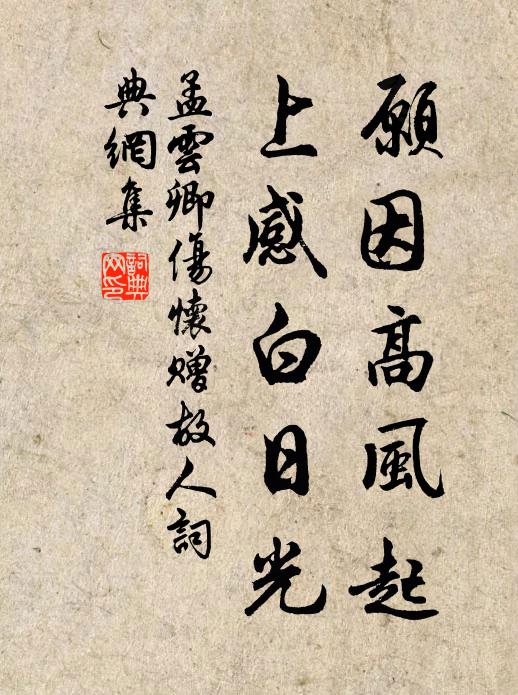 願因高風起
上感白日光
孟雲卿傷懷贈故人詞
典網集
詞典
网印